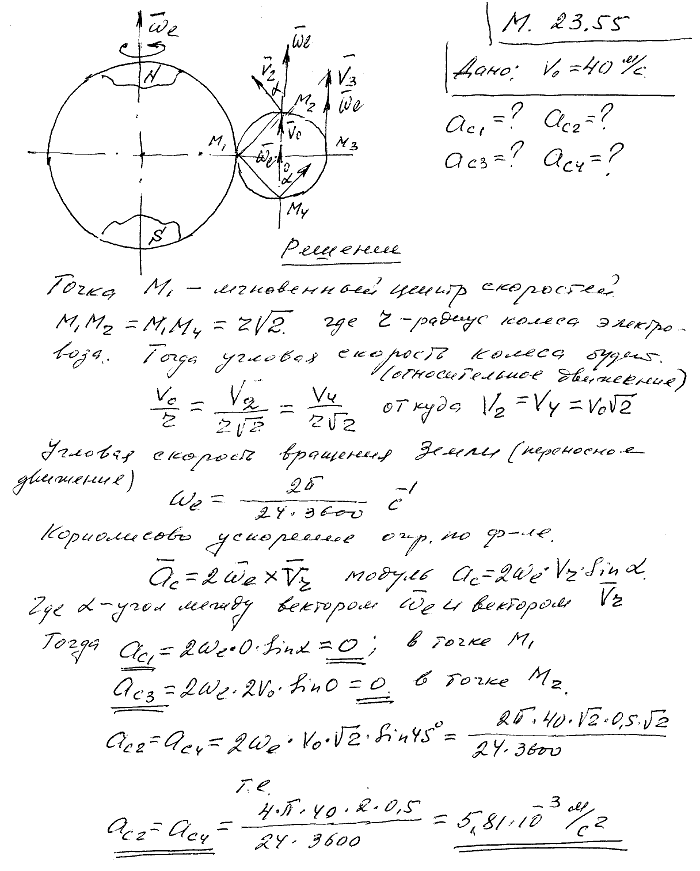 М. 23.55
Дано: V₀ = 40 м/с
a_c1 = ? a_c2 = ?
a_c3 = ? a_c4 = ?
ω̄e
N
S
M₁
V̄₂
α
ω̄e
M₂
V̄₀
ω̄e
0
α
M₄
V̄₃
ω̄e
M₃
Решение
Точка M₁ – мгновенный центр скоростей
M₁M₂ = M₁M₄ = r√2. где r – радиус колеса электро-
воза. Тогда угловая скорость колеса будет.
(относительное движение)
V₀/r = V₂/(r√2) = V₄/(r√2) откуда V₂ = V₄ = V₀√2
Угловая скорость вращения Земли (переносное
движение)
ωe = 2π/(24·3600) c⁻¹
Кориолисово ускорение опр. по ф-ле.
ā_c = 2ω̄e × V̄r модуль a_c = 2ωe·Vr·sinα.
Где α – угол между вектором ω̄e и вектором V̄r
Тогда a_c1 = 2ωe·0·sinα = 0; в точке M₁
a_c3 = 2ωe·2V₀·sin0 = 0. в точке M₂.
a_c2 = a_c4 = 2ωe·V₀·√2·sin45° = 2π·40·√2·0,5·√2/(24·3600)
т.е.
a_c2 = a_c4 = 4·π·40·2·0,5/(24·3600) = 5,81·10⁻³ м/с²